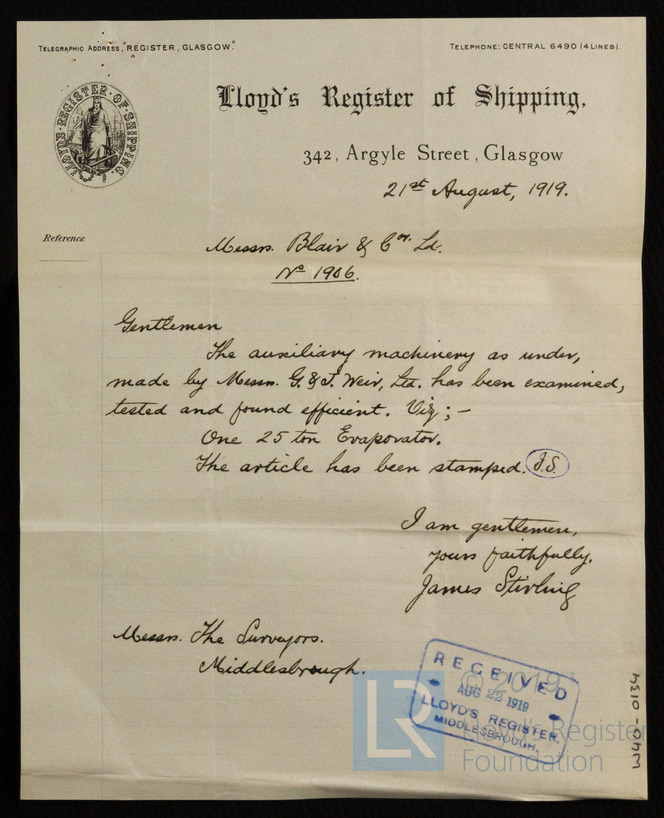 TELEGRAPHIC ADDRESS, "REGISTER, GLASGOW."
TELEPHONE: CENTRAL 6490 (4 LINES).
LLOYD'S REGISTER OF SHIPPING.
Lloyd's Register of Shipping,
342, Argyle Street, Glasgow
21st August, 1919.
Reference
Messrs. Blair & Coy. Ld.
No 1906.
Gentlemen
The auxiliary machinery as under,
made by Messrs. G. & J. Weir, Ltd. has been examined,
tested and found efficient. Viz; –
One 25 ton Evaporator.
The article has been stamped. J.S.
I am gentlemen,
yours faithfully,
James Stirling
Messrs. The Surveyors.
Middlesbrough.
RECEIVED
AUG 22 1919
LLOYD'S REGISTER,
MIDDLESBROUGH.
© 2019
LR
Lloyd's Register
Foundation
W40-0134